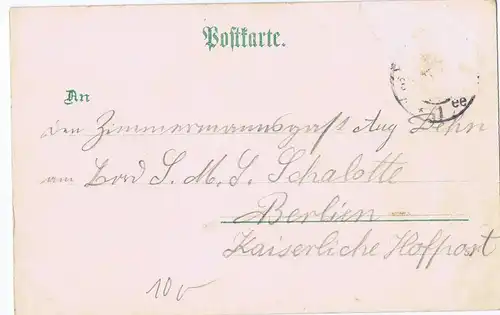 Postkarte.
An
den Zimmermannsgast Aug Dehn
am Bord S. M. S. Schalotte
Berlien
Kaiserliche Hofpost
ee
10